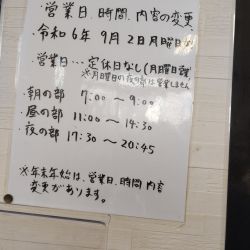 ・営業日、時間、内容の変更
・令和6年9月2日月曜日
営業日…定休日なし(月曜日
※月曜日の夜の部は営業しません
・朝の部 7:00〜9:00
・昼の部 11:00〜14:30
・夜の部 17:30〜20:45
※年末年始は、営業日、時間、内容
変更があります。